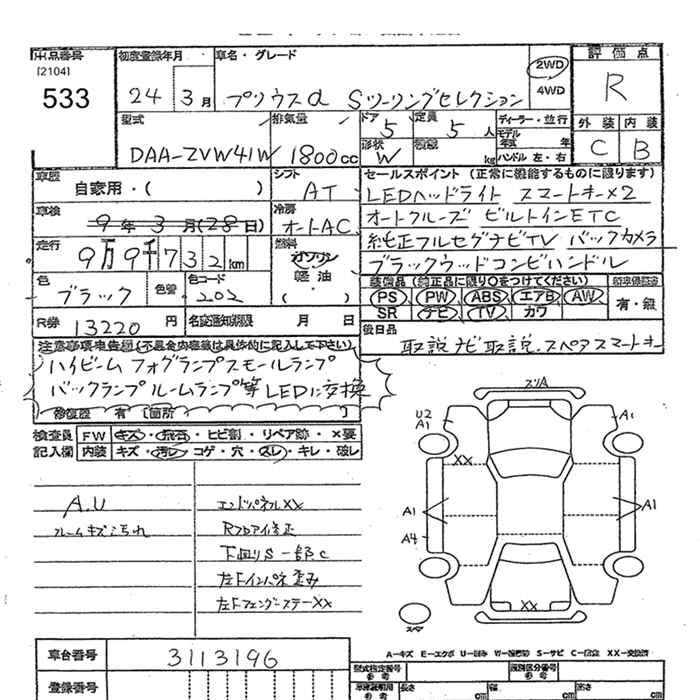 出品番号
[2104]
533
初度登録年月
24年 3月
車名・グレード
プリウスα Sツーリングセレクション
2WD
4WD
評価点
R
外装 内装
C B
型式
DAA-ZVW41W
排気量
1800cc
ドア
5
定員
5人
形状
W
積載
kg
ディーラー・並行
モデル年式 年
ハンドル 左・右
車歴
自家用・( )
シフト
AT
車検
9年3月(28日)
冷房
オートAC
走行
99732km
燃料
ガソリン
軽油
( )
色
ブラック
色替
色コード
202
R券 13220円
名変通知期限 月 日
セールスポイント (正常に機能するものに限ります)
LEDヘッドライト スマートキー×2
オートクルーズ ビルトインETC
純正フルセグナビTV バックカメラ
ブラックウッドコンビハンドル
装備品(純正品に限り○をつけてください)
PS PW ABS エアB AW
SR ナビ TV カワ
有・無
後日品
取説 ナビ取説 スペアスマートキー
注意事項申告欄(不具合内容等は具体的に記入して下さい)
ハイビーム フォグランプ スモールランプ
バックランプ ルームランプ等 LEDに交換
修復歴 有 [箇所
検査員記入欄
FW キズ・飛石・ヒビ割・リペア跡・×要
内装 キズ・汚レ・コゲ・穴・スレ・キレ・破レ
A.U
エンドパネルXX
フレームキズこすれ
Rフロア修正
下回りS一部C
左Fインパネ歪み
左Fフェンダーステー XX
スリA
U2
A1
A1
XX
A1
A1
A4
XX
スペア
A-キズ E-エクボ U-凹み W-補修跡 S-サビ C-腐食 XX-交換済
車台番号
3113196
登録番号
型式指定番号
参考
類別区分番号
参考
長さ cm
幅 cm
高さ cm